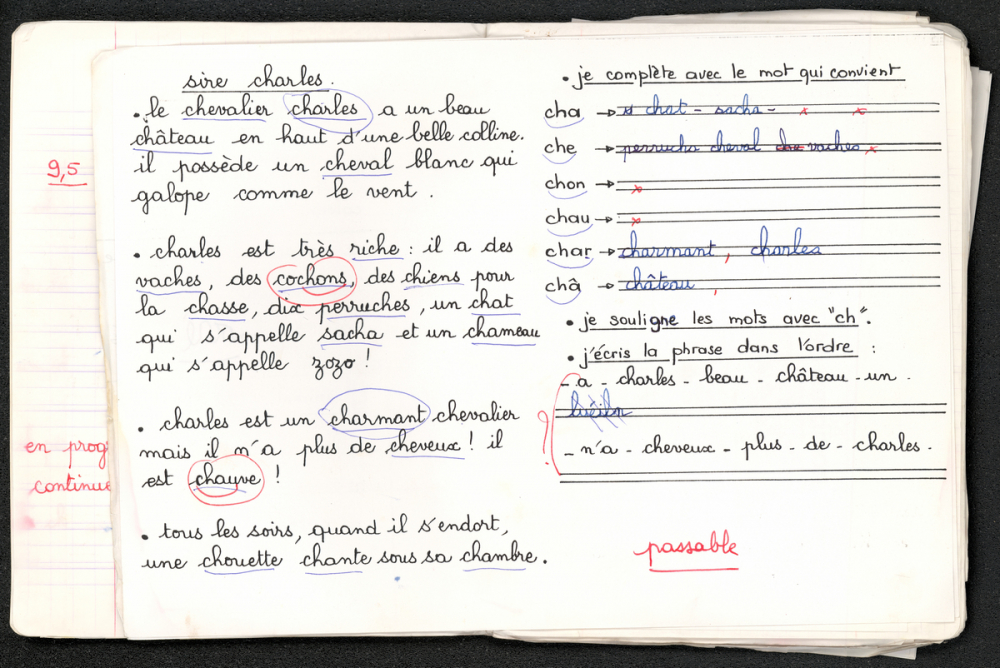 9,5
en prog
continue
sire charles.
• le chevalier charles a un beau
château en haut d'une belle colline.
il possède un cheval blanc qui
galope comme le vent.
• charles est très riche : il a des
vaches, des cochons, des chiens pour
la chasse, dix perruches, un chat
qui s'appelle sacha et un chameau
qui s'appelle zozo !
• charles est un charmant chevalier
mais il n'a plus de cheveux ! il
est chauve !
• tous les soirs, quand il s'endort,
une chouette chante sous sa chambre.
• je complète avec le mot qui convient
cha → chat - sacha -
che → perruche cheval vaches
chon →
chau →
char → charmant, charles
châ → château,
• je souligne les mots avec "ch".
• j'écris la phrase dans l'ordre :
- a - charles - beau - château - un .
?
- n'a - cheveux - plus - de - charles .
passable